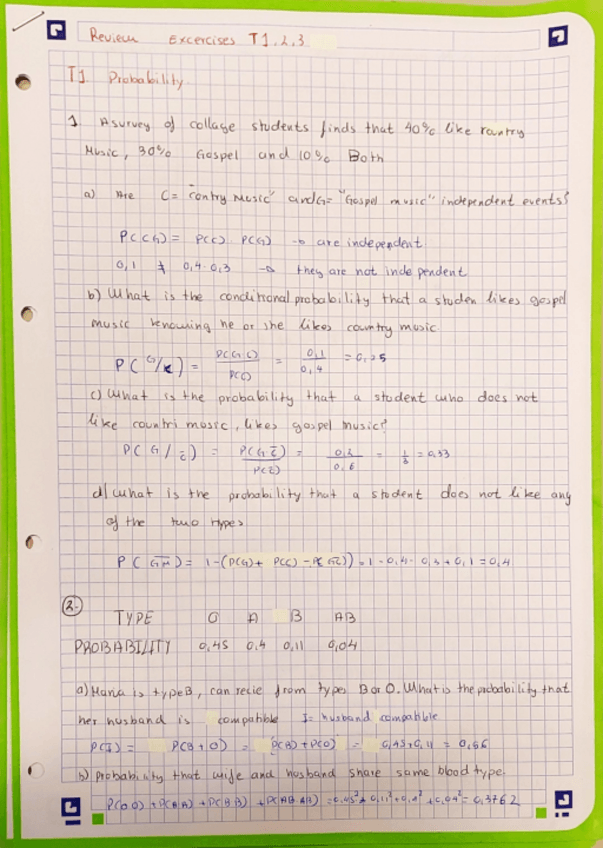 Review Excercises T1, 2, 3
T1. Probability
1. A survey of collage students finds that 40% like country
Music, 30% Gospel and 10% Both
a) Are C= "Contry Music" and G= "Gospel music" independent events?
P(CG) = P(C) · P(G) → are independent
0,1 ≠ 0,4 · 0,3 → they are not independent
b) What is the conditional probability that a studen likes gospel
music knowing he or she likes country music.
P(G/C) = P(G·C)/P(C) = 0,1/0,4 = 0,25
c) What is the probability that a student who does not
like countri music, likes gospel music?
P(G/C̅) = P(G C̅)/P(C̅) = 0,2/0,6 = 1/3 = 0,33
d) What is the probability that a student does not like any
of the two types
P( ) = 1-(P(G)+ P(C) - P( )) = 1 - 0,4 - 0,3 + 0,1 = 0,4
2.-
TYPE O A B AB
PROBABILITY 0,45 0,4 0,11 0,04
a) Maria is type B, can recie from types B or O. What is the probability that
her husband is compatible I= husband compatible
P(I) = P(B+O) = P(B)+P(O) = 0,45+0,11 = 0,56
b) Probability that wife and husband share same blood type.
P(OO) + P(AA) + P(BB) + P(AB·AB) = 0,45² + 0,11² + 0,4² + 0,04² = 0,3762